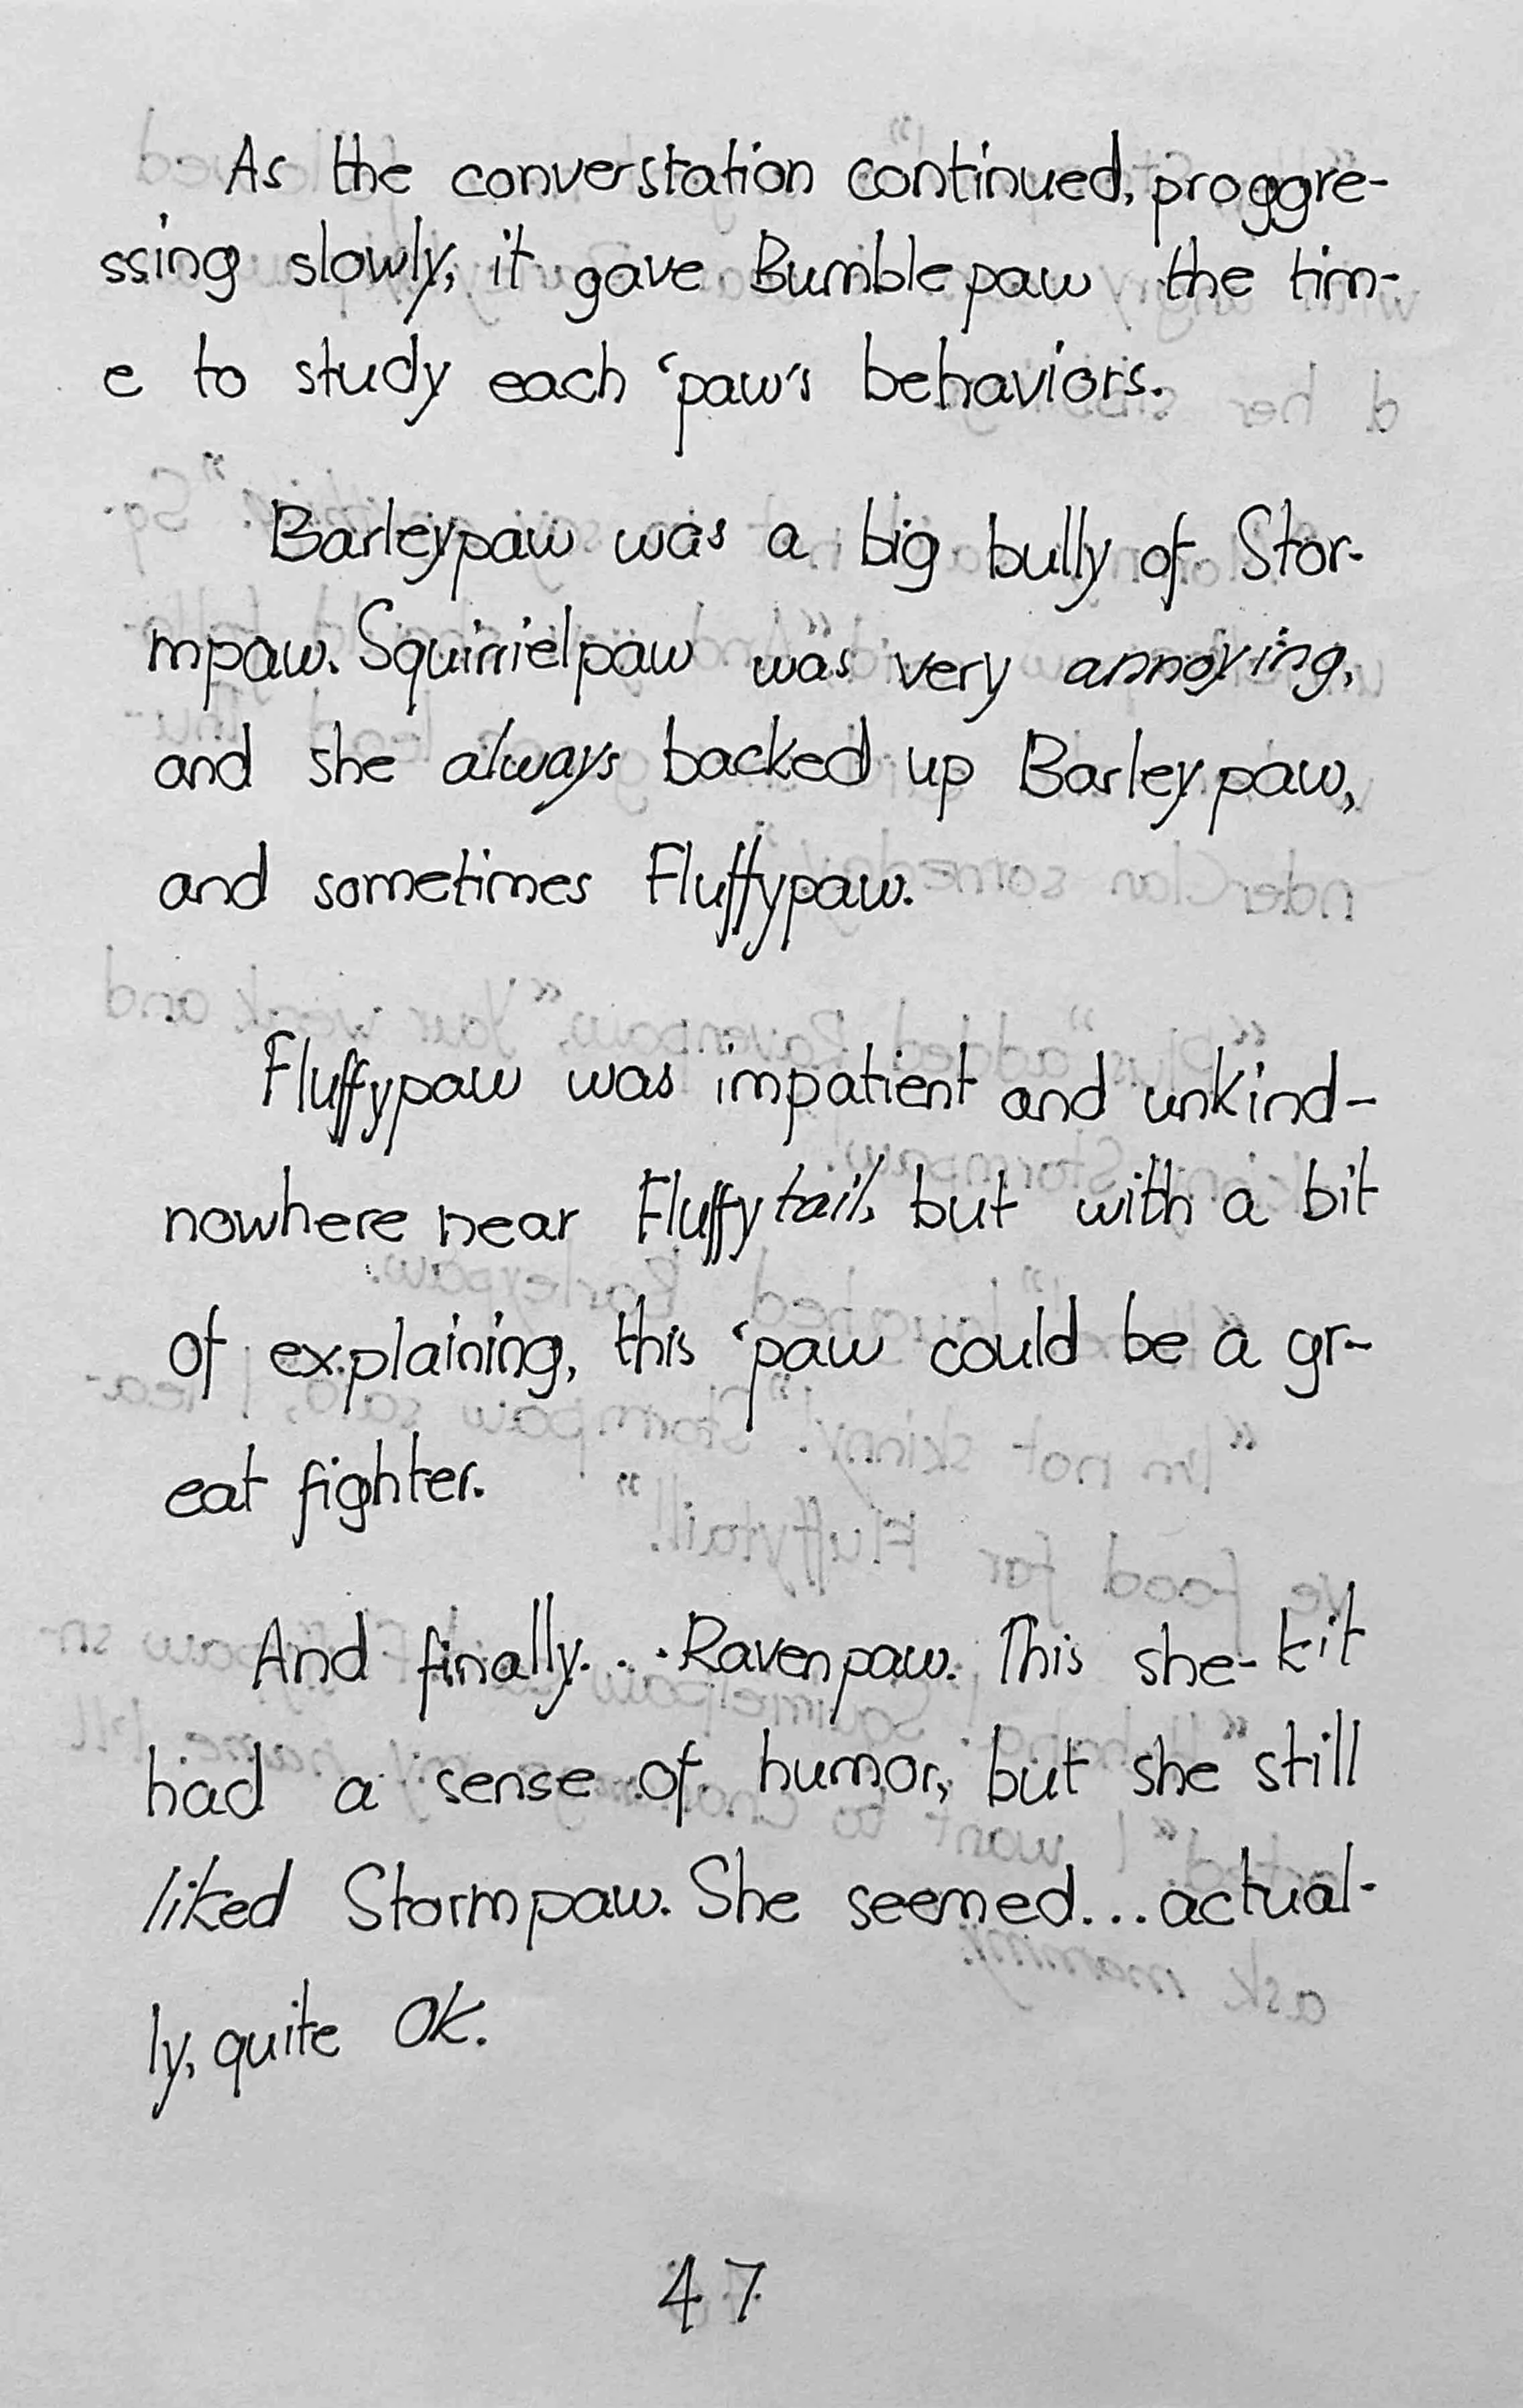 As the converstation continued, proggre-
ssing slowly, it gave Bumblepaw the tim-
e to study each ‘paw's behaviors.
Barleypaw was a big bully of Stor-
mpaw. Squirrielpaw was very annoying,
and she always backed up Barleypaw,
and sometimes Fluffypaw.
Fluffypaw was impatient and unkind-
nowhere near Fluffytail, but with a bit
of explaining, this ‘paw could be a gr-
eat fighter.
And finally... Ravenpaw. This she-kit
had a sense of humor, but she still
liked Stormpaw. She seemed... actual-
ly, quite OK.
47